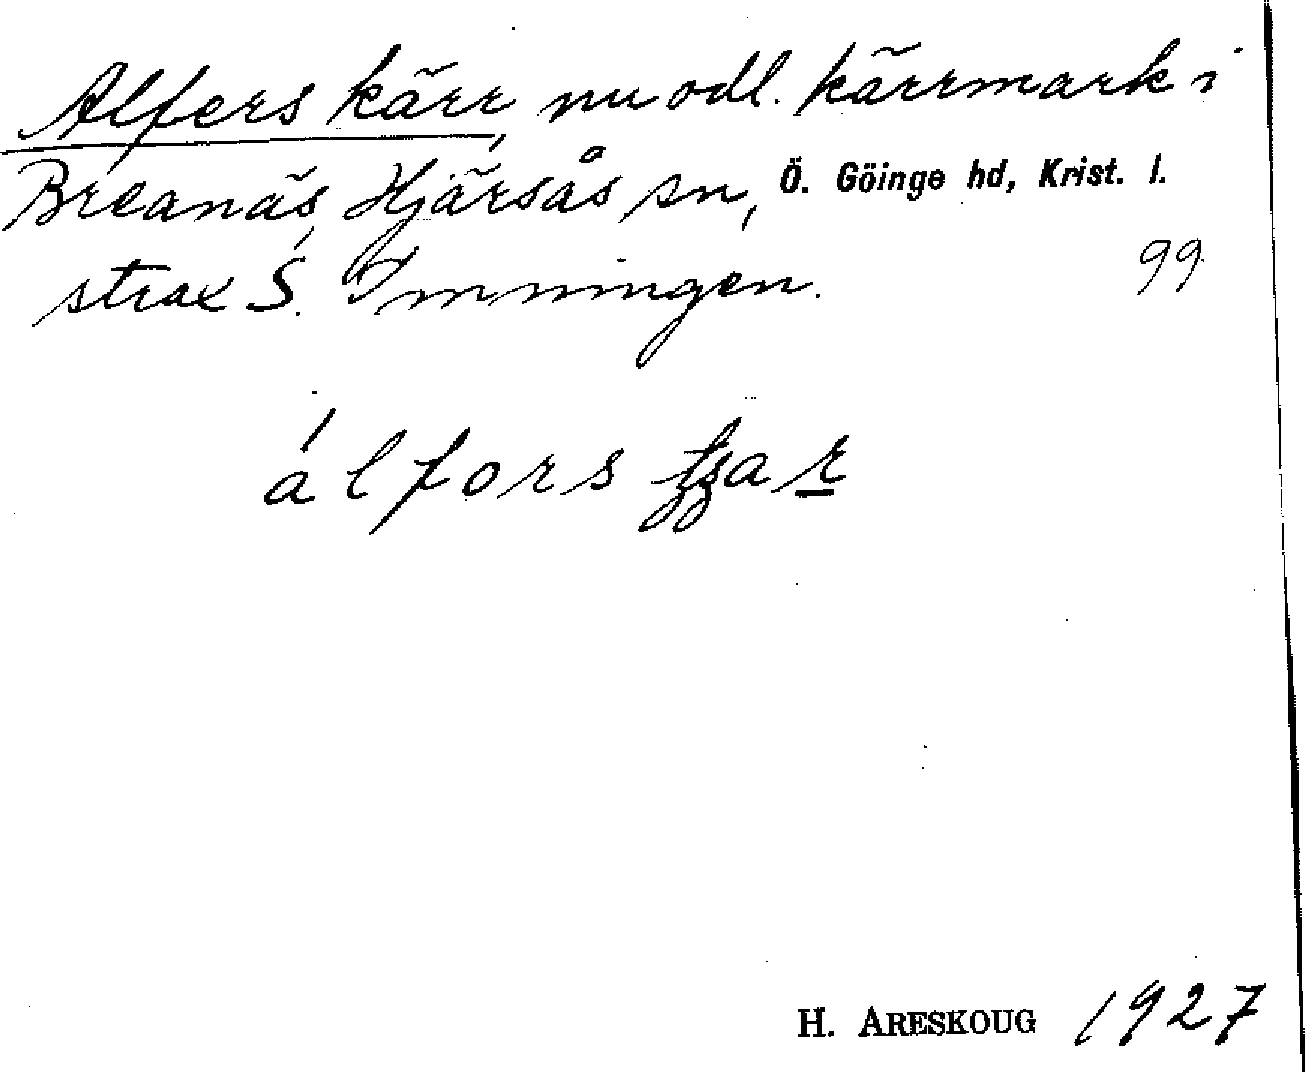 Alfers kärr, nu odl. kärrmark i
Breanäs, Hjärsås sn, Ö. Göinge hd, Krist. l.
strax S. Immingen. 99
álfors
H. ARESKOUG 1927